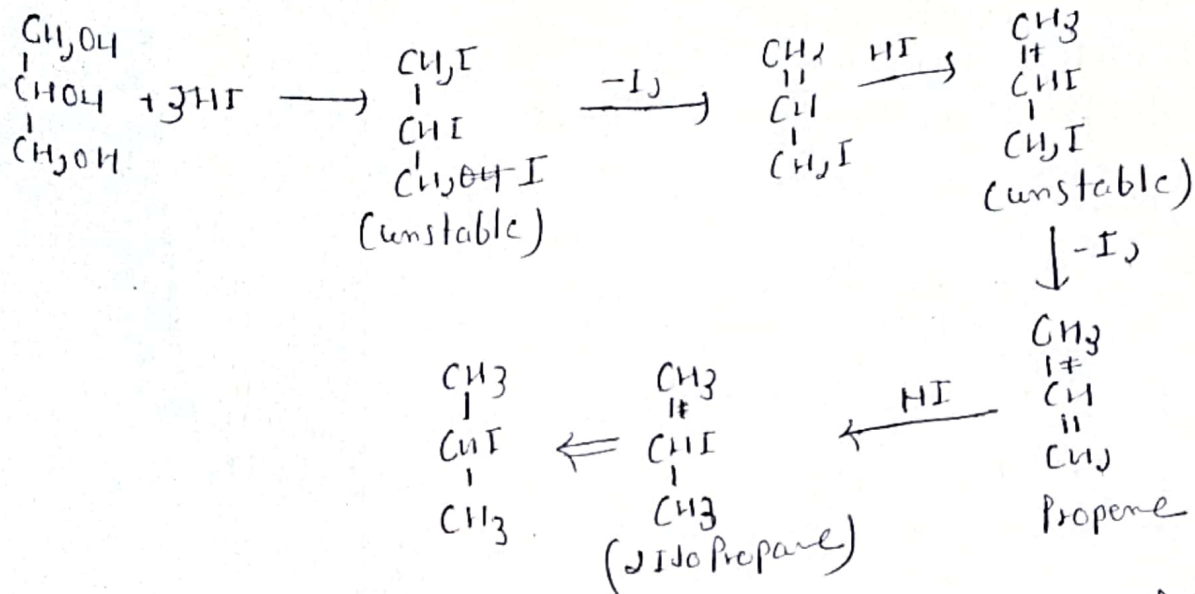 CH₂OH
CHOH + 3HI ⟶
CH₂OH
CH₂I
CHI
CH₂OH I
(unstable)
-I₂
CH₂
CH
CH₂I
HI
CH3
CHI
CH₂I
(unstable)
-I₂
CH3
CH
CH₂
Propene
HI
CH3
CHI
CH3
(2 Iodo Propane)
CH3
CHI
CH3